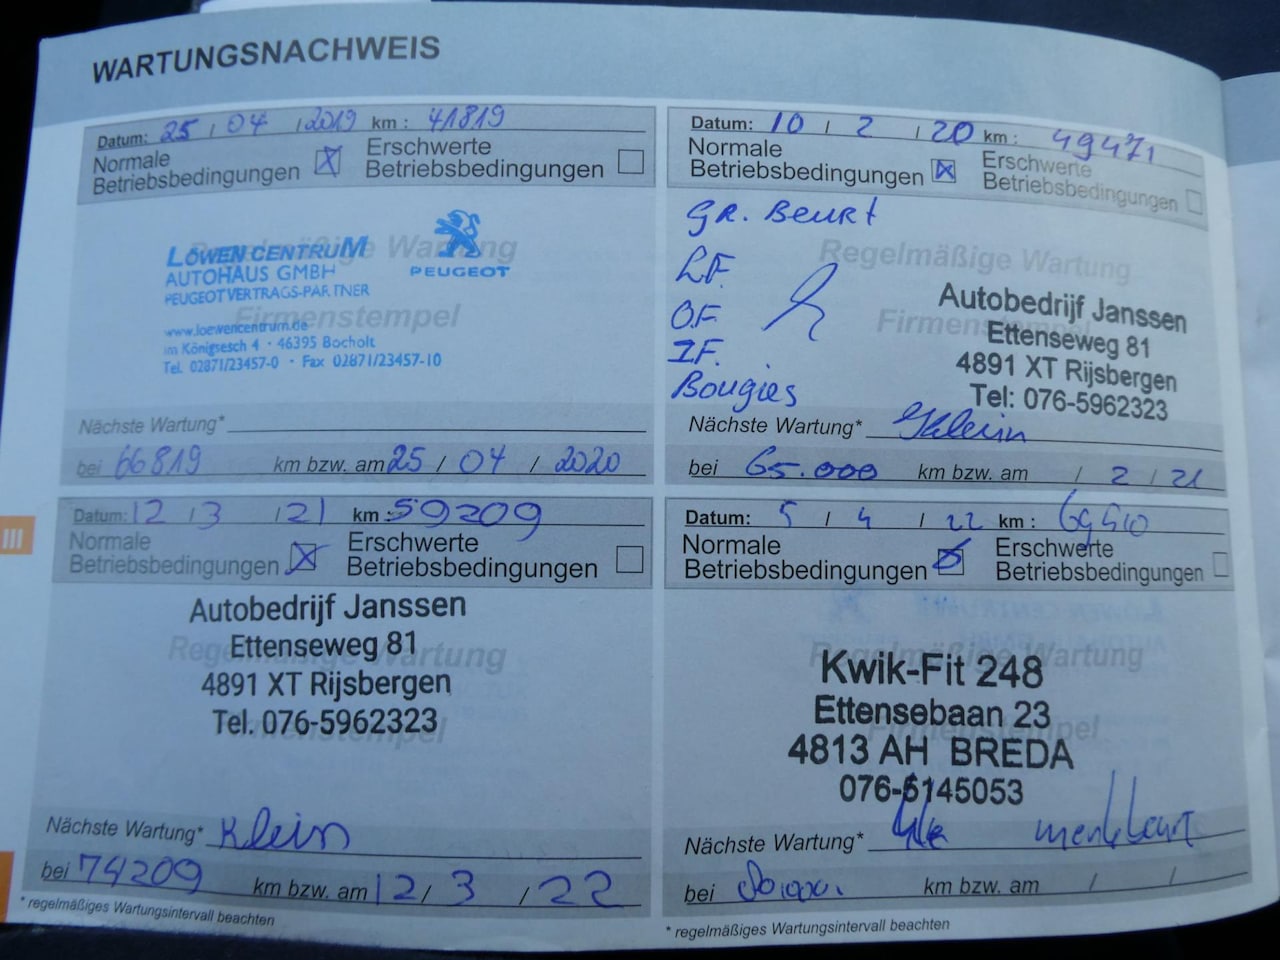 WARTUNGSNACHWEIS
Datum: 25 / 04 / 2019 km : 41819
Normale Betriebsbedingungen X Erschwerte Betriebsbedingungen
Regelmäßige Wartung
Firmenstempel
LÖWEN CENTRUM
AUTOHAUS GMBH
PEUGEOT VERTRAGS-PARTNER
PEUGEOT
www.loewencentrum.de
im Königsesch 4 · 46395 Bocholt
Tel. 02871/23457-0 · Fax 02871/23457-10
Nächste Wartung*
bei 66819 km bzw. am 25 / 04 / 2020
Datum: 10 / 2 / 20 km : 49471
Normale Betriebsbedingungen X Erschwerte Betriebsbedingungen
GR. Beurt
Regelmäßige Wartung
Firmenstempel
L.F.
O.F.
I.F.
Bougies
Autobedrijf Janssen
Ettenseweg 81
4891 XT Rijsbergen
Tel: 076-5962323
Nächste Wartung* Klein
bei 65.000 km bzw. am / 2 / 21
III
Datum: 12 / 3 / 21 km : 59209
Normale Betriebsbedingungen X Erschwerte Betriebsbedingungen
Autobedrijf Janssen
Ettenseweg 81
4891 XT Rijsbergen
Tel. 076-5962323
Regelmäßige Wartung
Firmenstempel
Nächste Wartung* Klein
bei 74209 km bzw. am 12 / 3 / 22
* regelmäßiges Wartungsintervall beachten
Datum: 5 / 4 / 22 km :
Normale Betriebsbedingungen Erschwerte Betriebsbedingungen
Regelmäßige Wartung
Firmenstempel
Kwik-Fit 248
Ettensebaan 23
4813 AH BREDA
076-5145053
Nächste Wartung*
bei km bzw. am / /
* regelmäßiges Wartungsintervall beachten